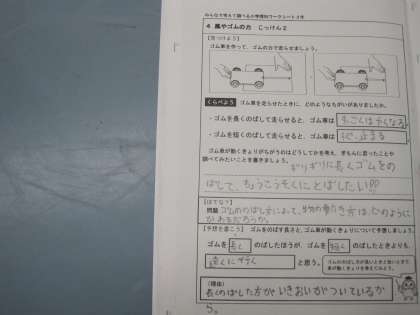 みんなで考えて調べる小学理科ワークシート3年
4 風やゴムの力 じっけん2
【見つけよう】
ゴム車を作って、ゴムの力で走らせましょう。
くらべよう ゴム車を走らせたときに、どのようなちがいがありましたか。
・ゴムを長くのばして走らせると、ゴム車は
・ゴムを短くのばして走らせると、ゴム車は 止まる
ゴム車が動くきょりがちがうのはどうしてかを考え、ぎもんに思ったことや
調べてみたいことを書きましょう。
ぎりぎりに長くゴムをの
ばして、ちょうこうそくにとばしたい!!
【はてな?】
問題 ゴムののばし方によって、物の動き方は、どのように
かわるだろうか。
【予想を書こう】 ゴムをのばす長さと、ゴム車が動くきょりについて予想しましょう。
ゴムを 長く のばしたほうが、ゴムを 短く のばしたときよりも、
遠くに行く と思う。
(理由)
長くのばした方が いきおいがついているか
ら。